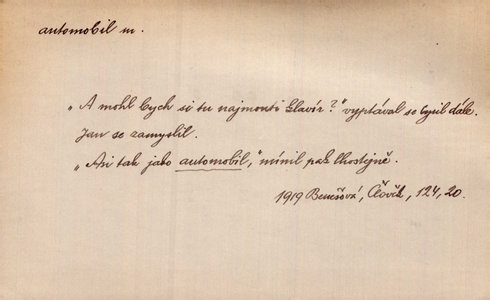 automobil m.
„A mohl bych si tu najmouti klavír?" vyptával se Cyril dále.
Jan se zamyslil.
„Asi tak jako automobil," mínil pak lhostejně.
1919 Benešová, Člověk, 124, 20.